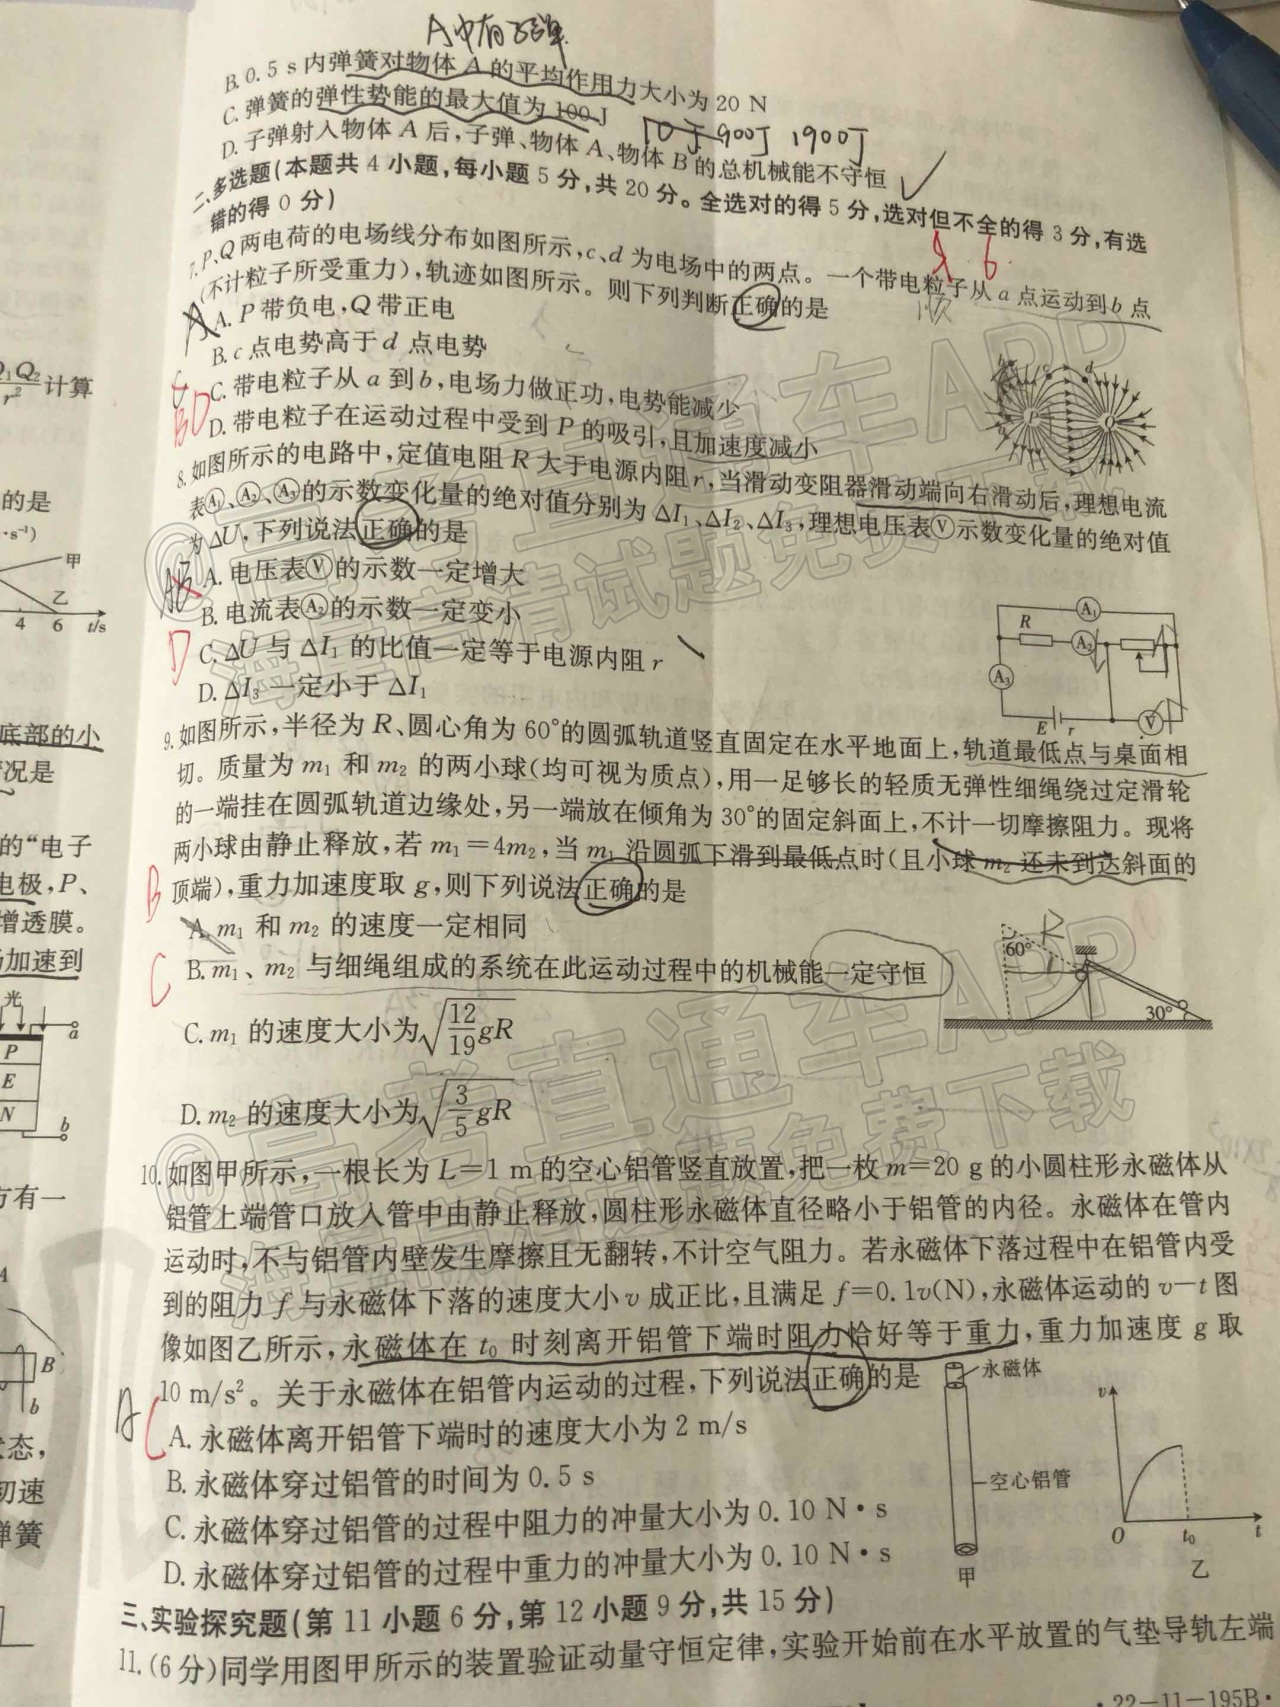 A中有子弹
B. 0.5 s内弹簧对物体 A 的平均作用力大小为 20 N
C. 弹簧的弹性势能的最大值为 100 J
10J 900J 1900J
D. 子弹射入物体 A 后,子弹、物体 A、物体 B 的总机械能不守恒
二、多选题(本题共 4 小题,每小题 5 分,共 20 分。全选对的得 5 分,选对但不全的得 3 分,有选
错的得 0 分)
7. P、Q 两电荷的电场线分布如图所示,c、d 为电场中的两点。一个带电粒子从 a 点运动到 b 点
(不计粒子所受重力),轨迹如图所示。则下列判断正确的是
A. P 带负电,Q 带正电
B. c 点电势高于 d 点电势
C. 带电粒子从 a 到 b,电场力做正功,电势能减少
D. 带电粒子在运动过程中受到 P 的吸引,且加速度减小
BD
P Q c d
8. 如图所示的电路中,定值电阻 R 大于电源内阻 r,当滑动变阻器滑动端向右滑动后,理想电流
表A₁、A₂、A₃的示数变化量的绝对值分别为 ΔI₁、ΔI₂、ΔI₃,理想电压表V示数变化量的绝对值
为 ΔU,下列说法正确的是
A. 电压表V的示数一定增大
B. 电流表A₂的示数一定变小
C. ΔU 与 ΔI₁ 的比值一定等于电源内阻 r
D. ΔI₃ 一定小于 ΔI₁
D
R A₁ A₂ A₃ V E r
9. 如图所示,半径为 R、圆心角为 60°的圆弧轨道竖直固定在水平地面上,轨道最低点与桌面相
切。质量为 m₁ 和 m₂ 的两小球(均可视为质点),用一足够长的轻质无弹性细绳绕过定滑轮
的一端挂在圆弧轨道边缘处,另一端放在倾角为 30°的固定斜面上,不计一切摩擦阻力。现将
两小球由静止释放,若 m₁=4m₂,当 m₁ 沿圆弧下滑到最低点时(且小球 m₂ 还未到达斜面的
顶端),重力加速度取 g,则下列说法正确的是
A. m₁ 和 m₂ 的速度一定相同
B. m₁、m₂ 与细绳组成的系统在此运动过程中的机械能一定守恒
C. m₁ 的速度大小为√(12/19 gR)
D. m₂ 的速度大小为√(3/5 gR)
B
C
R
60°
30°
10. 如图甲所示,一根长为 L=1 m 的空心铝管竖直放置,把一枚 m=20 g 的小圆柱形永磁体从
铝管上端管口放入管中由静止释放,圆柱形永磁体直径略小于铝管的内径。永磁体在管内
运动时,不与铝管内壁发生摩擦且无翻转,不计空气阻力。若永磁体下落过程中在铝管内受
到的阻力 f 与永磁体下落的速度大小 v 成正比,且满足 f=0.1v(N),永磁体运动的 v-t 图
像如图乙所示,永磁体在 t₀ 时刻离开铝管下端时阻力恰好等于重力,重力加速度 g 取
10 m/s²。关于永磁体在铝管内运动的过程,下列说法正确的是
A. 永磁体离开铝管下端时的速度大小为 2 m/s
B. 永磁体穿过铝管的时间为 0.5 s
C. 永磁体穿过铝管的过程中阻力的冲量大小为 0.10 N·s
D. 永磁体穿过铝管的过程中重力的冲量大小为 0.10 N·s
A C
永磁体
空心铝管
甲
v
O t₀ t
乙
三、实验探究题(第 11 小题 6 分,第 12 小题 9 分,共 15 分)
11. (6 分)同学用图甲所示的装置验证动量守恒定律,实验开始前在水平放置的气垫导轨左端
·22-11-195B·
Q₁Q₂/r² 计算
的是
·s⁻¹)
甲
乙
4 6 t/s
底部的小
况是
的“电子
电极,P、
增透膜。
加速到
光
a
P
E
N
b
方有一
B
b
态,
初速
弹簧
@高考直通车APP
海量高清试题免费下载
@高考直通车APP
海量高清试题免费下载